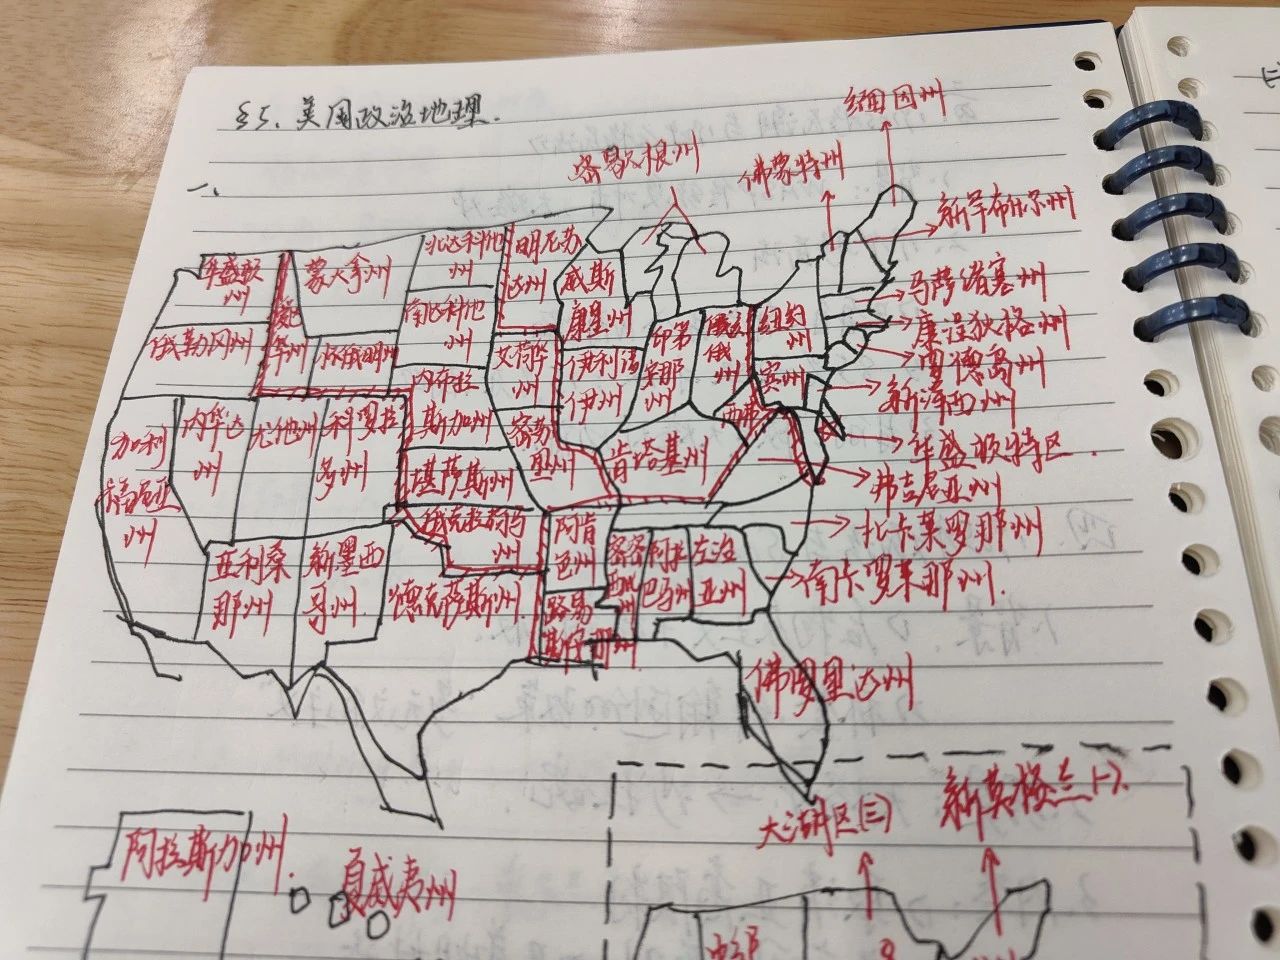 §5、美国政治地理.
一、
缅因州
密歇根州
佛蒙特州
新罕布什尔州
华盛顿
州
蒙大拿州
北达科他
州
明尼苏
达州
威斯
康星州
马萨诸塞州
俄勒冈州
爱达
华州
怀俄明州
南达科他
州
艾荷华
州
伊利诺
伊州
印第
安那
州
俄亥
俄
州
纽约
州
宾州
康涅狄格州
罗德岛州
新泽西州
加利
福尼亚
州
内华达
州
尤他州
科罗拉
多州
内布拉
斯加州
堪萨斯州
密苏
里州
肯塔基州
西弗
华盛顿特区.
弗吉尼亚州
北卡莱罗那州
南卡罗莱那州.
亚利桑
那州
新墨西
哥州.
俄克拉荷马
州
德克萨斯州
阿肯
色州
路易
斯安那州
密密
西北州
阿拉
巴马州
左治
亚州
佛罗里达州
阿拉斯加州.
夏威夷州
大湖区(三)
新英格兰(一).
中部